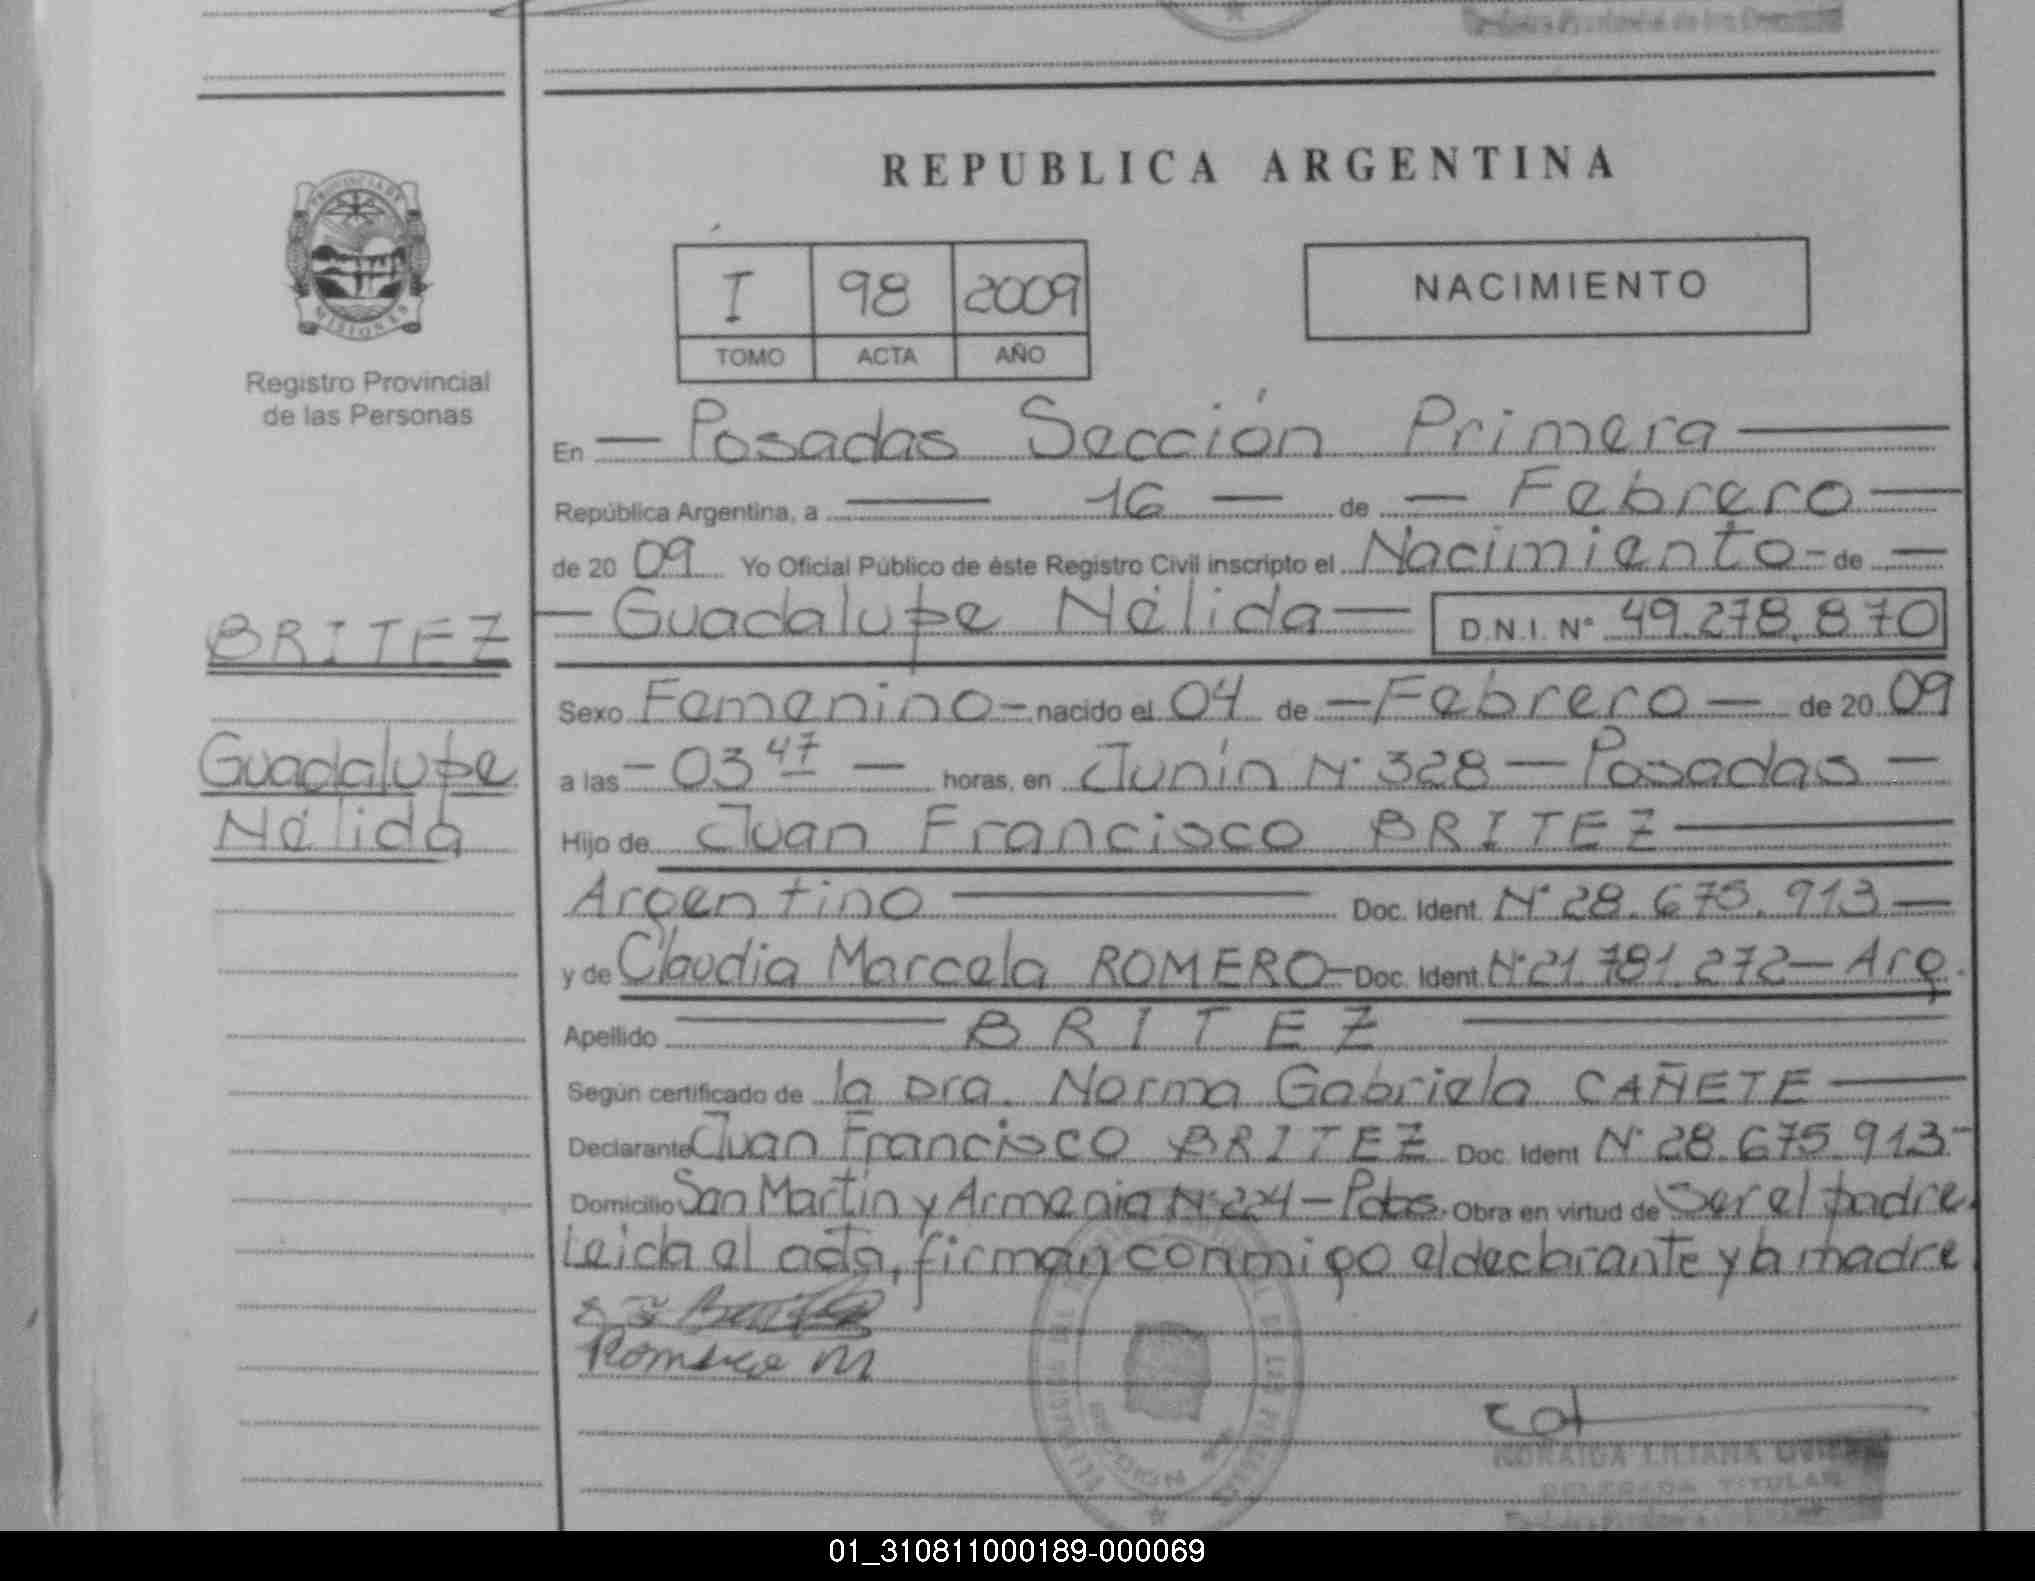 REPUBLICA ARGENTINA
PROVINCIA DE
MISIONES
Registro Provincial
de las Personas
I 98 2009
TOMO ACTA AÑO
NACIMIENTO
En — Posadas Sección Primera —
República Argentina, a — 16 — de — Febrero —
de 20 09 Yo Oficial Público de éste Registro Civil inscripto el Nacimiento - de —
— Guadalupe Nélida — D.N.I. Nº 49.278.870
BRITEZ
Guadalupe
Nélida
Sexo Femenino - nacido el 04 de — Febrero — de 20 09
a las - 03 47 — horas, en Junín Nº 328 — Posadas —
Hijo de Juan Francisco BRITEZ —
Argentino — Doc. Ident. Nº 28.675.913 —
y de Claudia Marcela ROMERO - Doc. Ident. Nº 21.781.272 — Arg.
Apellido — BRITEZ —
Según certificado de la Dra. Norma Gabriela CAÑETE —
Declarante Juan Francisco BRITEZ Doc. Ident Nº 28.675.913 -
Domicilio San Martín y Armenia Nº 224 - Pdas. Obra en virtud de Ser el padre.
Leida el acta, firman conmigo el declarante y la madre
Romero M
SECCION
NORAIDA LILIANA
DELEGADA TITULAR
01_310811000189-000069